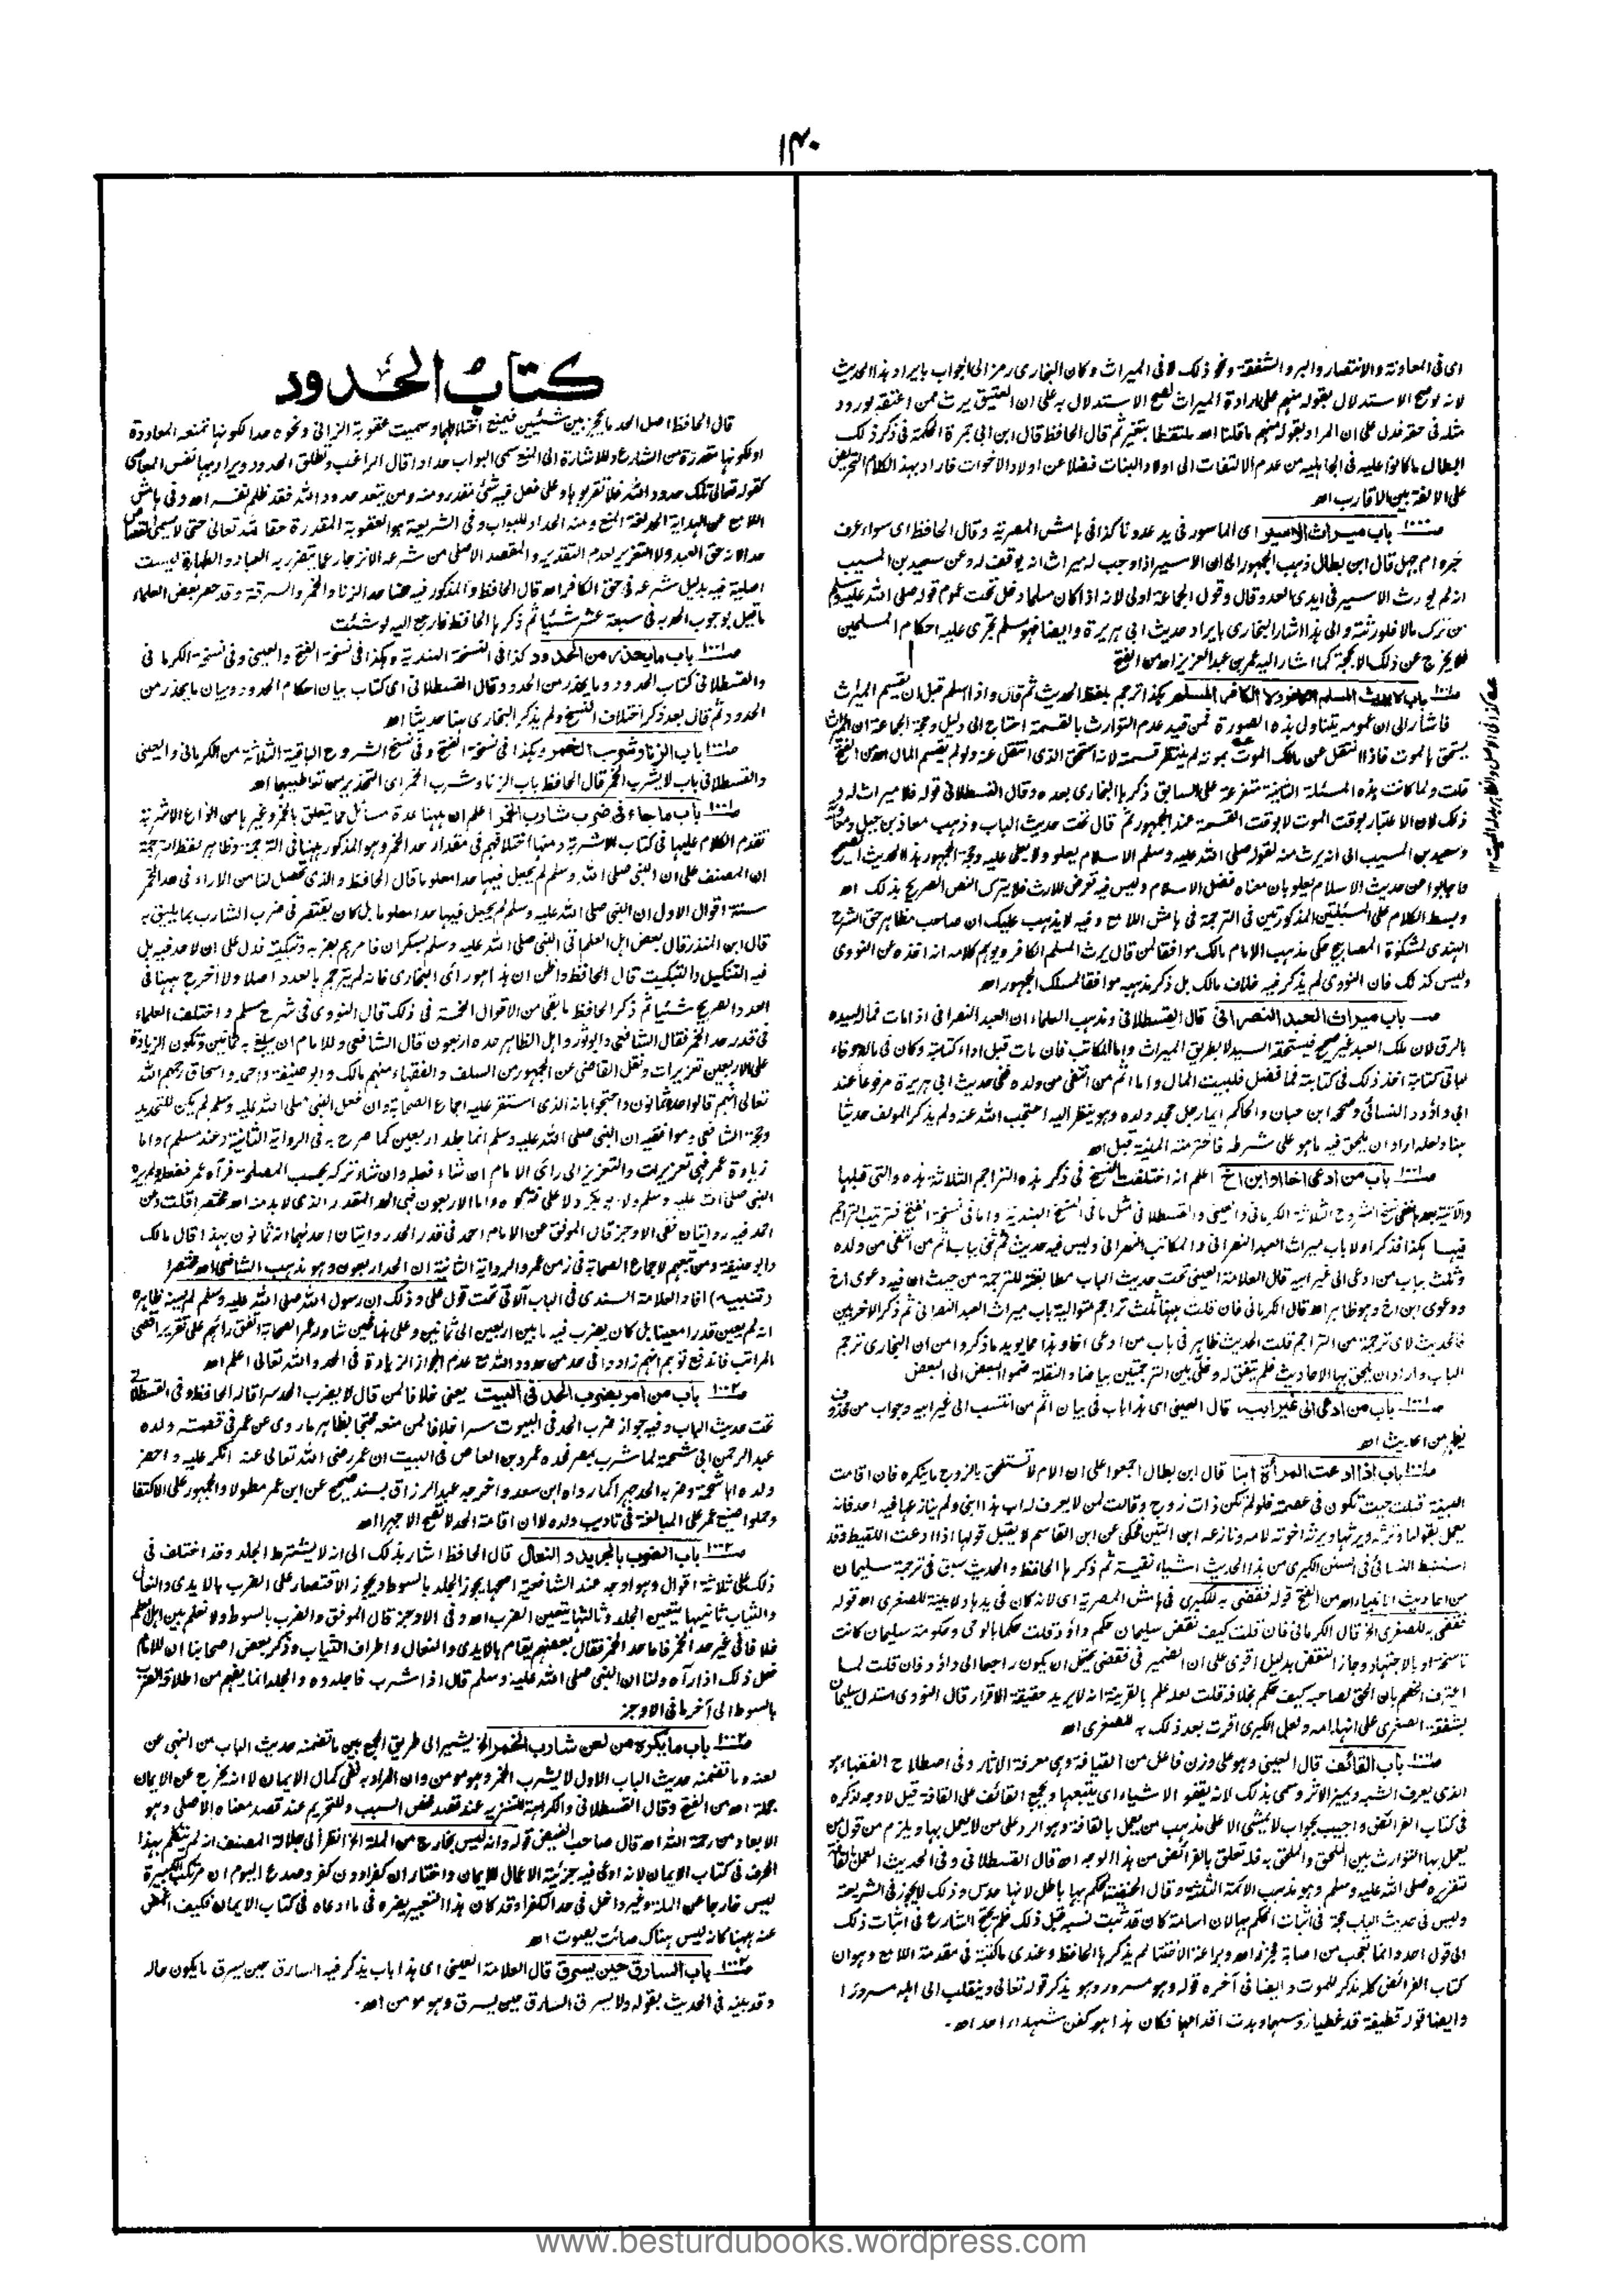 ۱۴۰
ای فی المعاونة والانتصار والبر والشفقة ونحو ذلک لا فی المیراث وکان البخاری رمز الی الجواب بایراد هذا الحدیث
لانه لو صح الاستدلال بقوله منهم علی ارادة المیراث لصح الاستدلال به علی ان العتیق یرث ممن اعتقه لورود
مثله فی حقه فدل علی ان المراد بقوله منهم ما قلنا اه ملتقطا بتغیر ثم قال الحافظ قال ابن ابی جمرة الحکمة فی ذکر ذلک
ابطال ما کانوا علیه فی الجاهلیة من عدم الالتفات الی اولاد البنات فضلا عن اولاد الاخوات فاراد بهذا الکلام التحریض
علی الالفة بین الاقارب اه
باب میراث الاسیر ای الماسور فی ید عدونا کذا فی هامش المصریة وقال الحافظ ای سواء عرف
خبره ام جهل قال ابن بطال ذهب الجمهور الی ان الاسیر اذا وجب له میراث انه یوقف له وعن سعید بن المسیب
انه لم یورث الاسیر فی ایدی العدو قال وقول الجماعة اولی لانه اذا کان مسلما دخل تحت عموم قوله صلی الله علیه وسلم
من ترک مالا فلورثته والی هذا اشار البخاری بایراد حدیث ابی هریرة وایضا فهو مسلم تجری علیه احکام المسلمین
فلا یخرج عن ذلک الا بحجة کما اشار الیه عمر بن عبد العزیز اه من الفتح
باب لا یرث المسلم الکافر ولا الکافر المسلم هکذا ترجم بلفظ الحدیث ثم قال واذا اسلم قبل ان یقسم المیراث
فاشار الی ان عمومه یتناول هذه الصورة فمن قید عدم التوارث بالقسمة احتاج الی دلیل وحجة الجماعة ان المیراث
یستحق بالموت فاذا انتقل عن ملک المیت بموته لم ینتظر قسمته لانه استحق الذی انتقل عنه ولو لم یقسم المال اه من الفتح
قلت ولما کانت هذه المسئلة الثانیة متفرعة علی السابق ذکرها البخاری بعده وقال القسطلانی قوله فلا میراث له
ذلک لان الاعتبار بوقت الموت لا بوقت القسمة عند الجمهور ثم قال تحت حدیث الباب وذهب معاذ بن جبل ومعاویة
وسعید بن المسیب الی انه یرث منه لقوله صلی الله علیه وسلم الاسلام یعلو ولا یعلی علیه وحجة الجمهور هذا الحدیث الصحیح
واجابوا عن حدیث الاسلام یعلو بان معناه فضل الاسلام ولیس فیه تعرض للارث فلا یترک النص الصریح بذلک اه
وبسط الکلام علی المسئلتین المذکورتین فی الترجمة فی هامش اللامع وفیه لا یذهب علیک ان صاحب مظاهر حق الشرح
الهندی لمشکوة المصابیح حکی مذهب الامام مالک موافقا لمن قال یرث المسلم الکافر ویوهم کلامه انه اخذه عن النووی
ولیس کذلک فان النووی لم یذکر فیه خلاف مالک بل ذکر مذهبه موافقا لمسلک الجمهور اه
باب میراث العبد النصرانی قال القسطلانی ومذهب العلماء ان العبد النصرانی اذا مات فماله لسیده
بالرق لان ملک العبد غیر صحیح فیستحقه السید لا بطریق المیراث واما المکاتب فان مات قبل اداء کتابته وکان فی ماله وفاء
لباقی کتابته اخذ ذلک فی کتابته فما فضل فلبیت المال واما اثم من انتفی من ولده ففی حدیث ابی هریرة مرفوعا عند
ابی داؤد والنسائی وصححه ابن حبان والحاکم ایما رجل جحد ولده وهو ینظر الیه احتجب الله عنه ولم یذکر المولف حدیثا
هنا ولعله اراد ان یلحق فیه ما هو علی شرطه فاخترمته المنیة قبل اه
باب من ادعی اخا او ابن اخ اعلم انه اختلفت النسخ فی ذکر هذه التراجم الثلاثة هذه والتی قبلها
والآتیة بعد ففی نسخ الشروح الثلاثة الکرمانی والعینی والقسطلانی مثل ما فی النسخ الهندیة واما فی نسخة الفتح فترتیب التراجم
فیها هکذا فذکر اولا باب میراث العبد النصرانی والمکاتب النصرانی ولیس فیه حدیث ثم ثنی بباب اثم من انتفی من ولده
وثلث بباب من ادعی الی غیر ابیه قال العلامة العینی تحت حدیث الباب مطابقته للترجمة من حیث ان فیه دعوی اخ
ودعوی ابن اخ وهو ظاهر اه قال الکرمانی فان قلت ههنا ثلث تراجم متوالیة باب میراث العبد النصرانی ثم ذکر الاخریین
فالحدیث لای ترجمة من التراجم قلت الحدیث ظاهر فی باب من ادعی اخا وهذا مما یؤید ما ذکروا من ان البخاری ترجم
الباب واراد ان یلحق بها الاحادیث فلم یتفق له وخلی بین الترجمتین بیاضا والنقلة ضموا البعض الی البعض
باب من ادعی الی غیر ابیه قال العینی ای هذا باب فی بیان اثم من انتسب الی غیر ابیه وجواب من محذوف
یظهر من احادیث اه
باب اذا ادعت المرأة ابنا قال ابن بطال اجمعوا علی ان الام لا تستلحق بالزوج ما ینکره فان اقامت
البینة قبلت حیث تکون فی عصمته فلو لم تکن ذات زوج وقالت لمن لا یعرف له اب هذا ابنی ولم ینازعها فیه احد فانه
یعمل بقولها وترثه ویرثها ویرثه اخوته لامه ونازعه ابن التین فحکی عن ابن القاسم لا یقبل قولها اذا ادعت اللقیط وقد
استنبط النسائی فی السنن الکبری من هذا الحدیث اشیاء نفیسة ثم ذکرها الحافظ والحدیث سبق فی ترجمة سلیمان
من احادیث الانبیاء اه من الفتح قوله فقضی به للکبری فی هامش المصریة ای لانه کان فی یدها ولا بینة للصغری اه قوله
فقضی به للصغری الخ قال الکرمانی فان قلت کیف نقض سلیمان حکم داؤد قلت حکما بالوحی وحکومة سلیمان کانت
ناسخة او بالاجتهاد وجاز النقض بدلیل اقوی علی ان الضمیر فی فقضی یحتمل ان یکون راجعا الی داؤد فان قلت لما
اعترف الخصم بان الحق لصاحبه کیف حکم بخلافه قلت لعله علم بالقرینة انه لا یرید حقیقة الاقرار قال النووی استدل سلیمان
بشفقة الصغری علی انها امه ولعل الکبری اقرت بعد ذلک به للصغری اه
باب القائف قال العینی وهو علی وزن فاعل من القیافة وهی معرفة الآثار وفی اصطلاح الفقهاء هو
الذی یعرف الشبه ویمیز الاثر وسمی بذلک لانه یقفو الاشیاء ای یتبعها ویجمع القائف علی القافة قیل لا وجه لذکره
فی کتاب الفرائض واجیب بجواب لا یمشی الا علی مذهب من یعمل بالقافة وهو الرد علی من لا یعمل بها ویلزم من قول من
یعمل بها التوارث بین الملحق والملحق به فله تعلق بالفرائض من هذا الوجه اه قال القسطلانی وفی الحدیث العمل بالقافة
لتقریره صلی الله علیه وسلم وهو مذهب الائمة الثلثة وقال الحنفیة الحکم بها باطل لانها حدس وذلک لا یجوز فی الشریعة
ولیس فی حدیث الباب حجة فی اثبات الحکم بها لان اسامة کان قد ثبت نسبه قبل ذلک فلم یحتج الشارع فی اثبات ذلک
الی قول احد وانما تعجب من اصابة مجزز اه وبراعة الاختتام لم یذکرها الحافظ وعندی ما کتبته فی مقدمة اللامع وهو ان
کتاب الفرائض کله مذکر للموت وایضا فی آخره قوله وهو مسرور وهو یذکر قوله تعالی وینقلب الی اهله مسرورا
وایضا قوله قطیفة قد غطیا رؤسهما وبدت اقدامهما فکان هذا هو کفن شهداء احد اه
کتاب الحدود
قال الحافظ اصل الحد ما یحجز بین شیئین فیمنع اختلاطهما وسمیت عقوبة الزانی ونحوه حدا لکونها تمنعه المعاودة
او لکونها مقدرة من الشارع وللاشارة الی المنع سمی البواب حدادا قال الراغب وتطلق الحدود ویراد بها نفس المعاصی
کقوله تعالی تلک حدود الله فلا تقربوها وعلی فعل فیه شئ مقدر ومنه ومن یتعد حدود الله فقد ظلم نفسه اه وفی هامش
اللامع عن الهدایة الحد لغة المنع ومنه الحداد للبواب وفی الشریعة هو العقوبة المقدرة حقا لله تعالی حتی لا یسمی القصاص
حدا لانه حق العبد ولا التعزیر لعدم التقدیر والمقصد الاصلی من شرعه الانزجار عما یتضرر به العباد والطهارة لیست
اصلیة فیه بدلیل شرعه فی حق الکافر اه قال الحافظ والمذکور فیه هنا حد الزنا والخمر والسرقة وقد حصر بعض العلماء
ما قیل بوجوب الحد به فی سبعة عشر شیئا ثم ذکرها الحافظ فارجع الیه لو شئت
باب ما یحذر من الحدود کذا فی النسخة الهندیة وهکذا فی نسخة الفتح والعینی وفی نسخة الکرمانی
والقسطلانی کتاب الحدود وما یحذر من الحدود قال القسطلانی ای کتاب بیان احکام الحدود وبیان ما یحذر من
الحدود ثم قال بعد ذکر اختلاف النسخ ولم یذکر البخاری هنا حدیثا اه
باب الزنا وشرب الخمر هکذا فی نسخة الفتح وفی نسخ الشروح الباقیة الثلاثة من الکرمانی والعینی
والقسطلانی باب لا یشرب الخمر قال الحافظ باب الزنا وشرب الخمر ای التحذیر من تعاطیهما اه
باب ما جاء فی ضرب شارب الخمر اعلم ان ههنا عدة مسائل مما یتعلق بالخمر وغیرها من انواع الاشربة
تقدم الکلام علیها فی کتاب الاشربة ومنها اختلافهم فی مقدار حد الخمر وهو المذکور ههنا فی الترجمة وظاهر لفظ الترجمة
ان المصنف علی ان النبی صلی الله علیه وسلم لم یجعل فیها حدا معلوما قال الحافظ والذی تحصل لنا من الاراء فی حد الخمر
ستة اقوال الاول ان النبی صلی الله علیه وسلم لم یجعل فیها حدا معلوما بل کان یقتصر فی ضرب الشارب بما یلیق به
قال ابن المنذر قال بعض اهل العلم اتی النبی صلی الله علیه وسلم بسکران فامرهم بضربه وتبکیته فدل علی ان لا حد فیه بل
فیه التنکیل والتبکیت قال الحافظ واظن ان هذا هو رأی البخاری فانه لم یترجم بالعدد اصلا ولا اخرج ههنا فی
العدد الصریح شیئا ثم ذکر الحافظ ما بقی من الاقوال الخمسة فی ذلک قال النووی فی شرح مسلم واختلف العلماء
فی قدر حد الخمر فقال الشافعی وابو ثور واهل الظاهر حده اربعون قال الشافعی وللامام ان یبلغ به ثمانین وتکون الزیادة
علی الاربعین تعزیرات ونقل القاضی عن الجمهور من السلف والفقهاء منهم مالک وابو حنیفة واحمد واسحاق رحمهم الله
تعالی انهم قالوا حده ثمانون واحتجوا بانه الذی استقر علیه اجماع الصحابة وان فعل النبی صلی الله علیه وسلم لم یکن للتحدید
وحجة الشافعی وموافقیه ان النبی صلی الله علیه وسلم انما جلد اربعین کما صرح به فی الروایة الثانیة (عند مسلم) واما
زیادة عمر فهی تعزیرات والتعزیر الی رأی الامام ان شاء فعله وان شاء ترکه بحسب المصلحة فرآه عمر ففعله ولم یره
النبی صلی الله علیه وسلم ولا ابو بکر ولا علی فترکوه واما الاربعون فهی الحد المقدر الذی لا بد منه اه مختصرا قلت وعن
احمد فیه روایتان ففی الاوجز قال الموفق عن الامام احمد فی قدر الحد روایتان احدیهما انه ثمانون بهذا قال مالک
وابو حنیفة ومن تبعهم لاجماع الصحابة فی زمن عمر والروایة الثانیة ان الحد اربعون وهو مذهب الشافعی اه مختصرا
(تنبیه) افاد العلامة السندی فی الباب الآتی تحت قول علی وذلک ان رسول الله صلی الله علیه وسلم لم یسنه ظاهره
انه لم یعین قدرا معینا بل کان یضرب فیه ما بین اربعین الی ثمانین وعلی هذا فحین شاور عمر الصحابة اتفق رائهم علی تقریر اقصی
المراتب فاندفع توهم انهم زادوا فی حد من حدود الله مع عدم جواز الزیادة فی الحد والله تعالی اعلم اه
باب من امر بضرب الحد فی البیت یعنی خلافا لمن قال لا یضرب الحد سرا قاله الحافظ وفی القسطلانی
تحت حدیث الباب وفیه جواز ضرب الحد فی البیوت سرا خلافا لمن منعه محتجا بظاهر ما روی عن عمر فی قصة ولده
عبد الرحمن ابی شحمة لما شرب بمصر فحده عمرو بن العاص فی البیت ان عمر رضی الله تعالی عنه انکر علیه واحضر
ولده ابا شحمة وضربه الحد جهرا کما رواه ابن سعد واخرجه عبد الرزاق بسند صحیح عن ابن عمر مطولا والجمهور علی الاکتفاء
وحملوا صنیع عمر علی المبالغة فی تادیب ولده لا ان اقامة الحد لا تصح الا جهرا اه
باب الضرب بالجرید والنعال قال الحافظ اشار بذلک الی انه لا یشترط الجلد وقد اختلف فی
ذلک علی ثلاثة اقوال وهو اوجه عند الشافعیة اصحها یجوز الجلد بالسوط ویجوز الاقتصار علی الضرب بالایدی والنعال
والثیاب ثانیها یتعین الجلد وثالثها یتعین الضرب اه وفی الاوجز قال الموفق والضرب بالسوط ولا نعلم بین اهل العلم
خلافا فی غیر حد الخمر فاما حد الخمر فقال بعضهم یقام بالایدی والنعال واطراف الثیاب وذکر بعض اصحابنا ان للامام
فعل ذلک اذا رآه ولنا ان النبی صلی الله علیه وسلم قال اذا شرب فاجلدوه والجلد انما یفهم من اطلاقه الضرب
بالسوط الی آخر ما فی الاوجز
باب ما یکره من لعن شارب الخمر الخ یشیر الی طریق الجمع بین ما تضمنه حدیث الباب من النهی عن
لعنه وما تضمنه حدیث الباب الاول لا یشرب الخمر وهو مومن وان المراد به نفی کمال الایمان لا انه یخرج عن الایمان
جملة اه من الفتح وقال القسطلانی والکراهیة للتنزیه عند قصد محض السبب وللتحریم عند قصد معناه الاصلی وهو
الابعاد من رحمة الله اه قال صاحب الفیض قوله وانه لیس بخارج من الملة الخ انظر الی جلالة المصنف انه لم یتکلم بهذا
الحرف فی کتاب الایمان لانه ادعی فیه جزئیة الاعمال للایمان واختار ان کفرا دون کفر وصدع الیوم ان مرتکب الکبیرة
لیس خارجا عن الملة وغیر داخل فی حد الکفر وقد کان هذا التعبیر یضره فی ما ادعاه فی کتاب الایمان فکیف اغمض
عنه ههنا کانه لیس هناک صائت یصوت اه
باب السارق حین یسرق قال العلامة العینی ای هذا باب یذکر فیه السارق حین یسرق ما یکون حاله
وقد بینه فی الحدیث بقوله ولا یسرق السارق حین یسرق وهو مومن اه
www.besturdubooks.wordpress.com